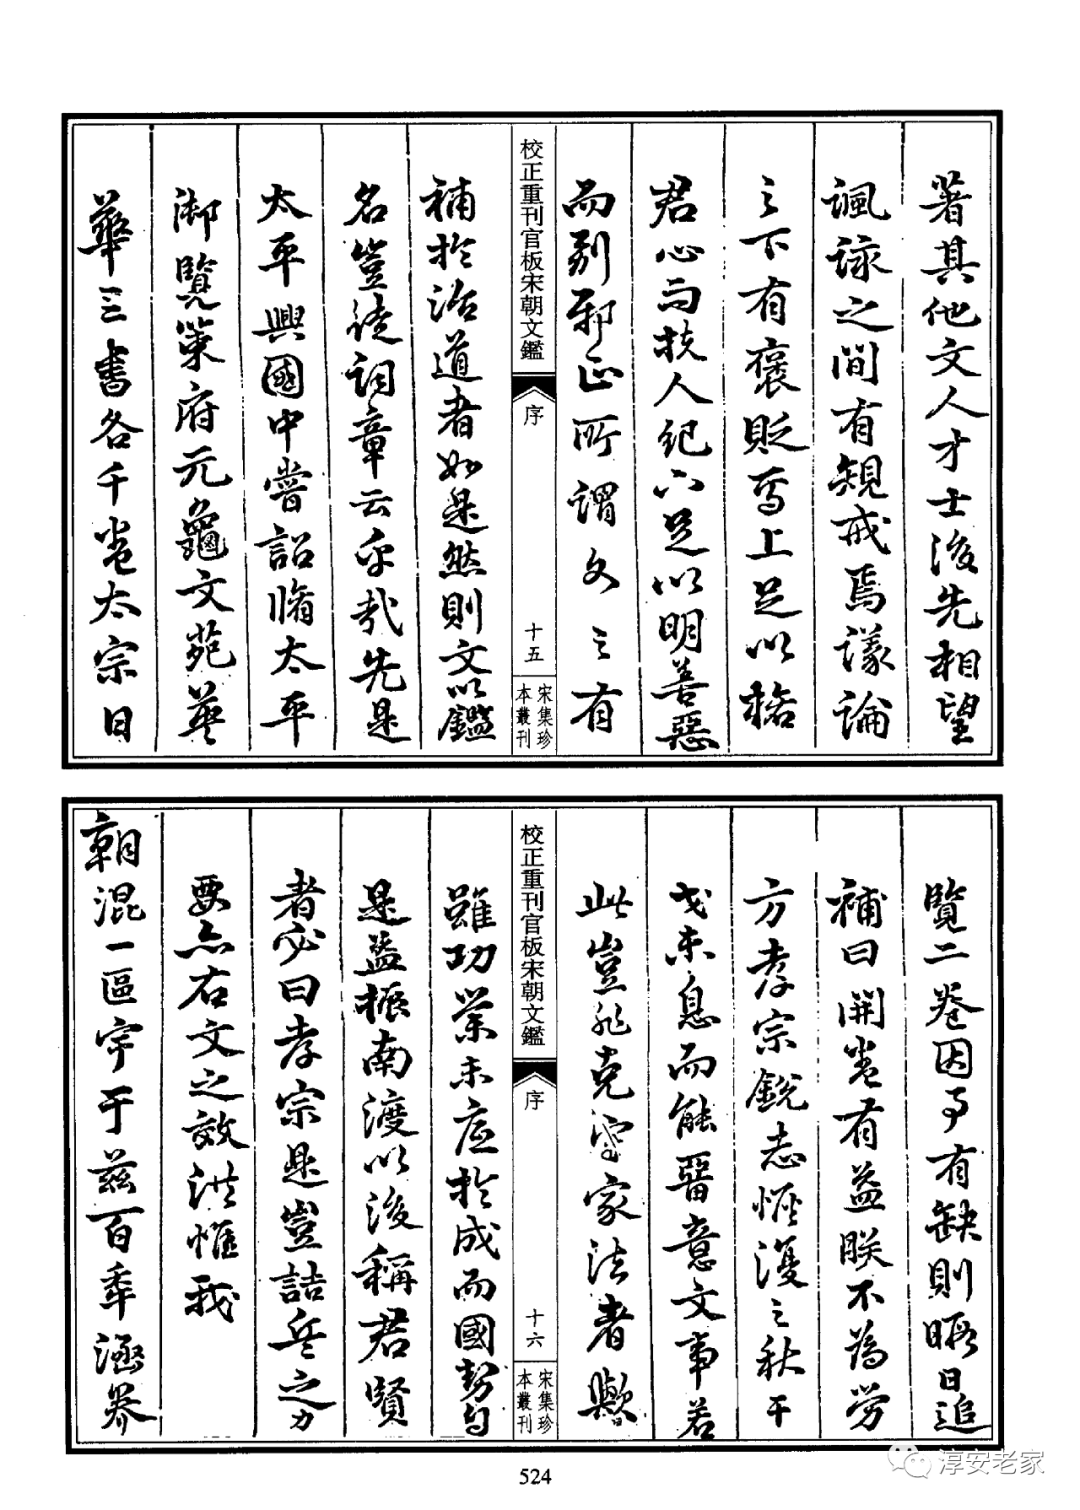 著其他文人才士後先相望
諷詠之間有規戒焉議論
之下有褒貶焉上足以格
君心而扶人紀下足以明善惡
而别邪正所謂文之有
校正重刊官板宋朝文鑑
序
十五
宋集珍
本叢刊
補於治道者如是然則文以鑑
名豈徒詞章云乎哉先是
太平興國中嘗詔脩太平
御覽策府元龜文苑英
華三書各千卷太宗日
覽二卷因事有缺則暇日追
補曰開卷有益朕不為勞
方孝宗銳志恢復之秋干
戈未息而能留意文事若
此豈非克守家法者歟
校正重刊官板宋朝文鑑
序
十六
宋集珍
本叢刊
雖功業未底於成而國勢自
是益振南渡以後稱君賢
者必曰孝宗是豈詰兵之力
要亦右文之效洪惟我
朝混一區宇于兹百年涵養
524
淳安老家